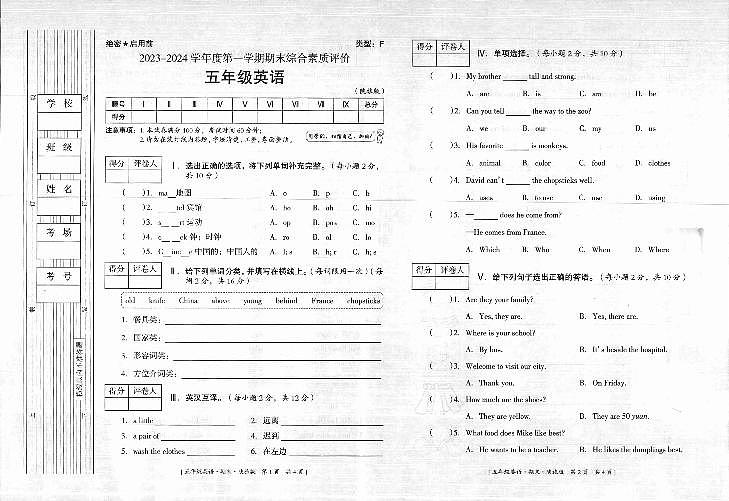 绝密★启用前 类型：F
2023-2024学年度第一学期期末综合素质评价
五年级英语
（陕旅版）
题号 Ⅰ Ⅱ Ⅲ Ⅳ Ⅴ Ⅵ Ⅶ Ⅷ Ⅸ 总分
得分
注意事项：1. 本试卷满分100分，考试时间60分钟；
学校
班级
姓名
考场
考号
得分 评卷人
Ⅰ. 选出正确的选项，将下列单词补充完整。（每小题2分，
共10分）
( )1. ma__地图 A. o B. p C. b
( )2. ____tel 宾馆 A. ho B. oh C. hi
( )3. s____rt 运动 A. op B. pos C. mo
( )4. c____ck 钟；时钟 A. ro B. ol C. lo
( )5. C__ine__e 中国的；中国人的 A. h; s B. h; r C. i; s
得分 评卷人
Ⅱ. 给下列单词分类，并填写在横线上。（每词限用一次）（每
词2分，共16分）
old knife China above young behind France chopsticks
1. 餐具类：
2. 国家类：
3. 形容词类：
4. 方位介词类：
得分 评卷人
Ⅲ. 英汉互译。（每小题2分，共12分）
1. a little 2. 远离
3. a pair of 4. 迟到
5. wash the clothes 6. 在左边
五年级英语·期末·陕旅版 第1页 共4页
得分 评卷人
Ⅳ. 单项选择。（每小题2分，共10分）
( )1. My brother ______ tall and strong.
A. are B. is C. am D. be
( )2. Can you tell ______ the way to the zoo?
A. we B. our C. my D. us
( )3. His favorite ______ is monkeys.
A. animal B. color C. food D. clothes
( )4. David can't ______ the chopsticks well.
A. uses B. to use C. use D. using
( )5. —______ does he come from?
—He comes from France.
A. Which B. Who C. When D. Where
得分 评卷人
Ⅴ. 给下列句子选出正确的答语。（每小题2分，共10分）
( )1. Are they your family?
A. Yes, they are. B. Yes, there are.
( )2. Where is your school?
A. By bus. B. It's beside the hospital.
( )3. Welcome to visit our city.
A. Thank you. B. On Friday.
( )4. How much are the shoes?
A. They are yellow. B. They are 50 yuan.
( )5. What food does Mike like best?
A. He wants to be a teacher. B. He likes the dumplings best.
五年级英语·期末·陕旅版 第2页 共4页